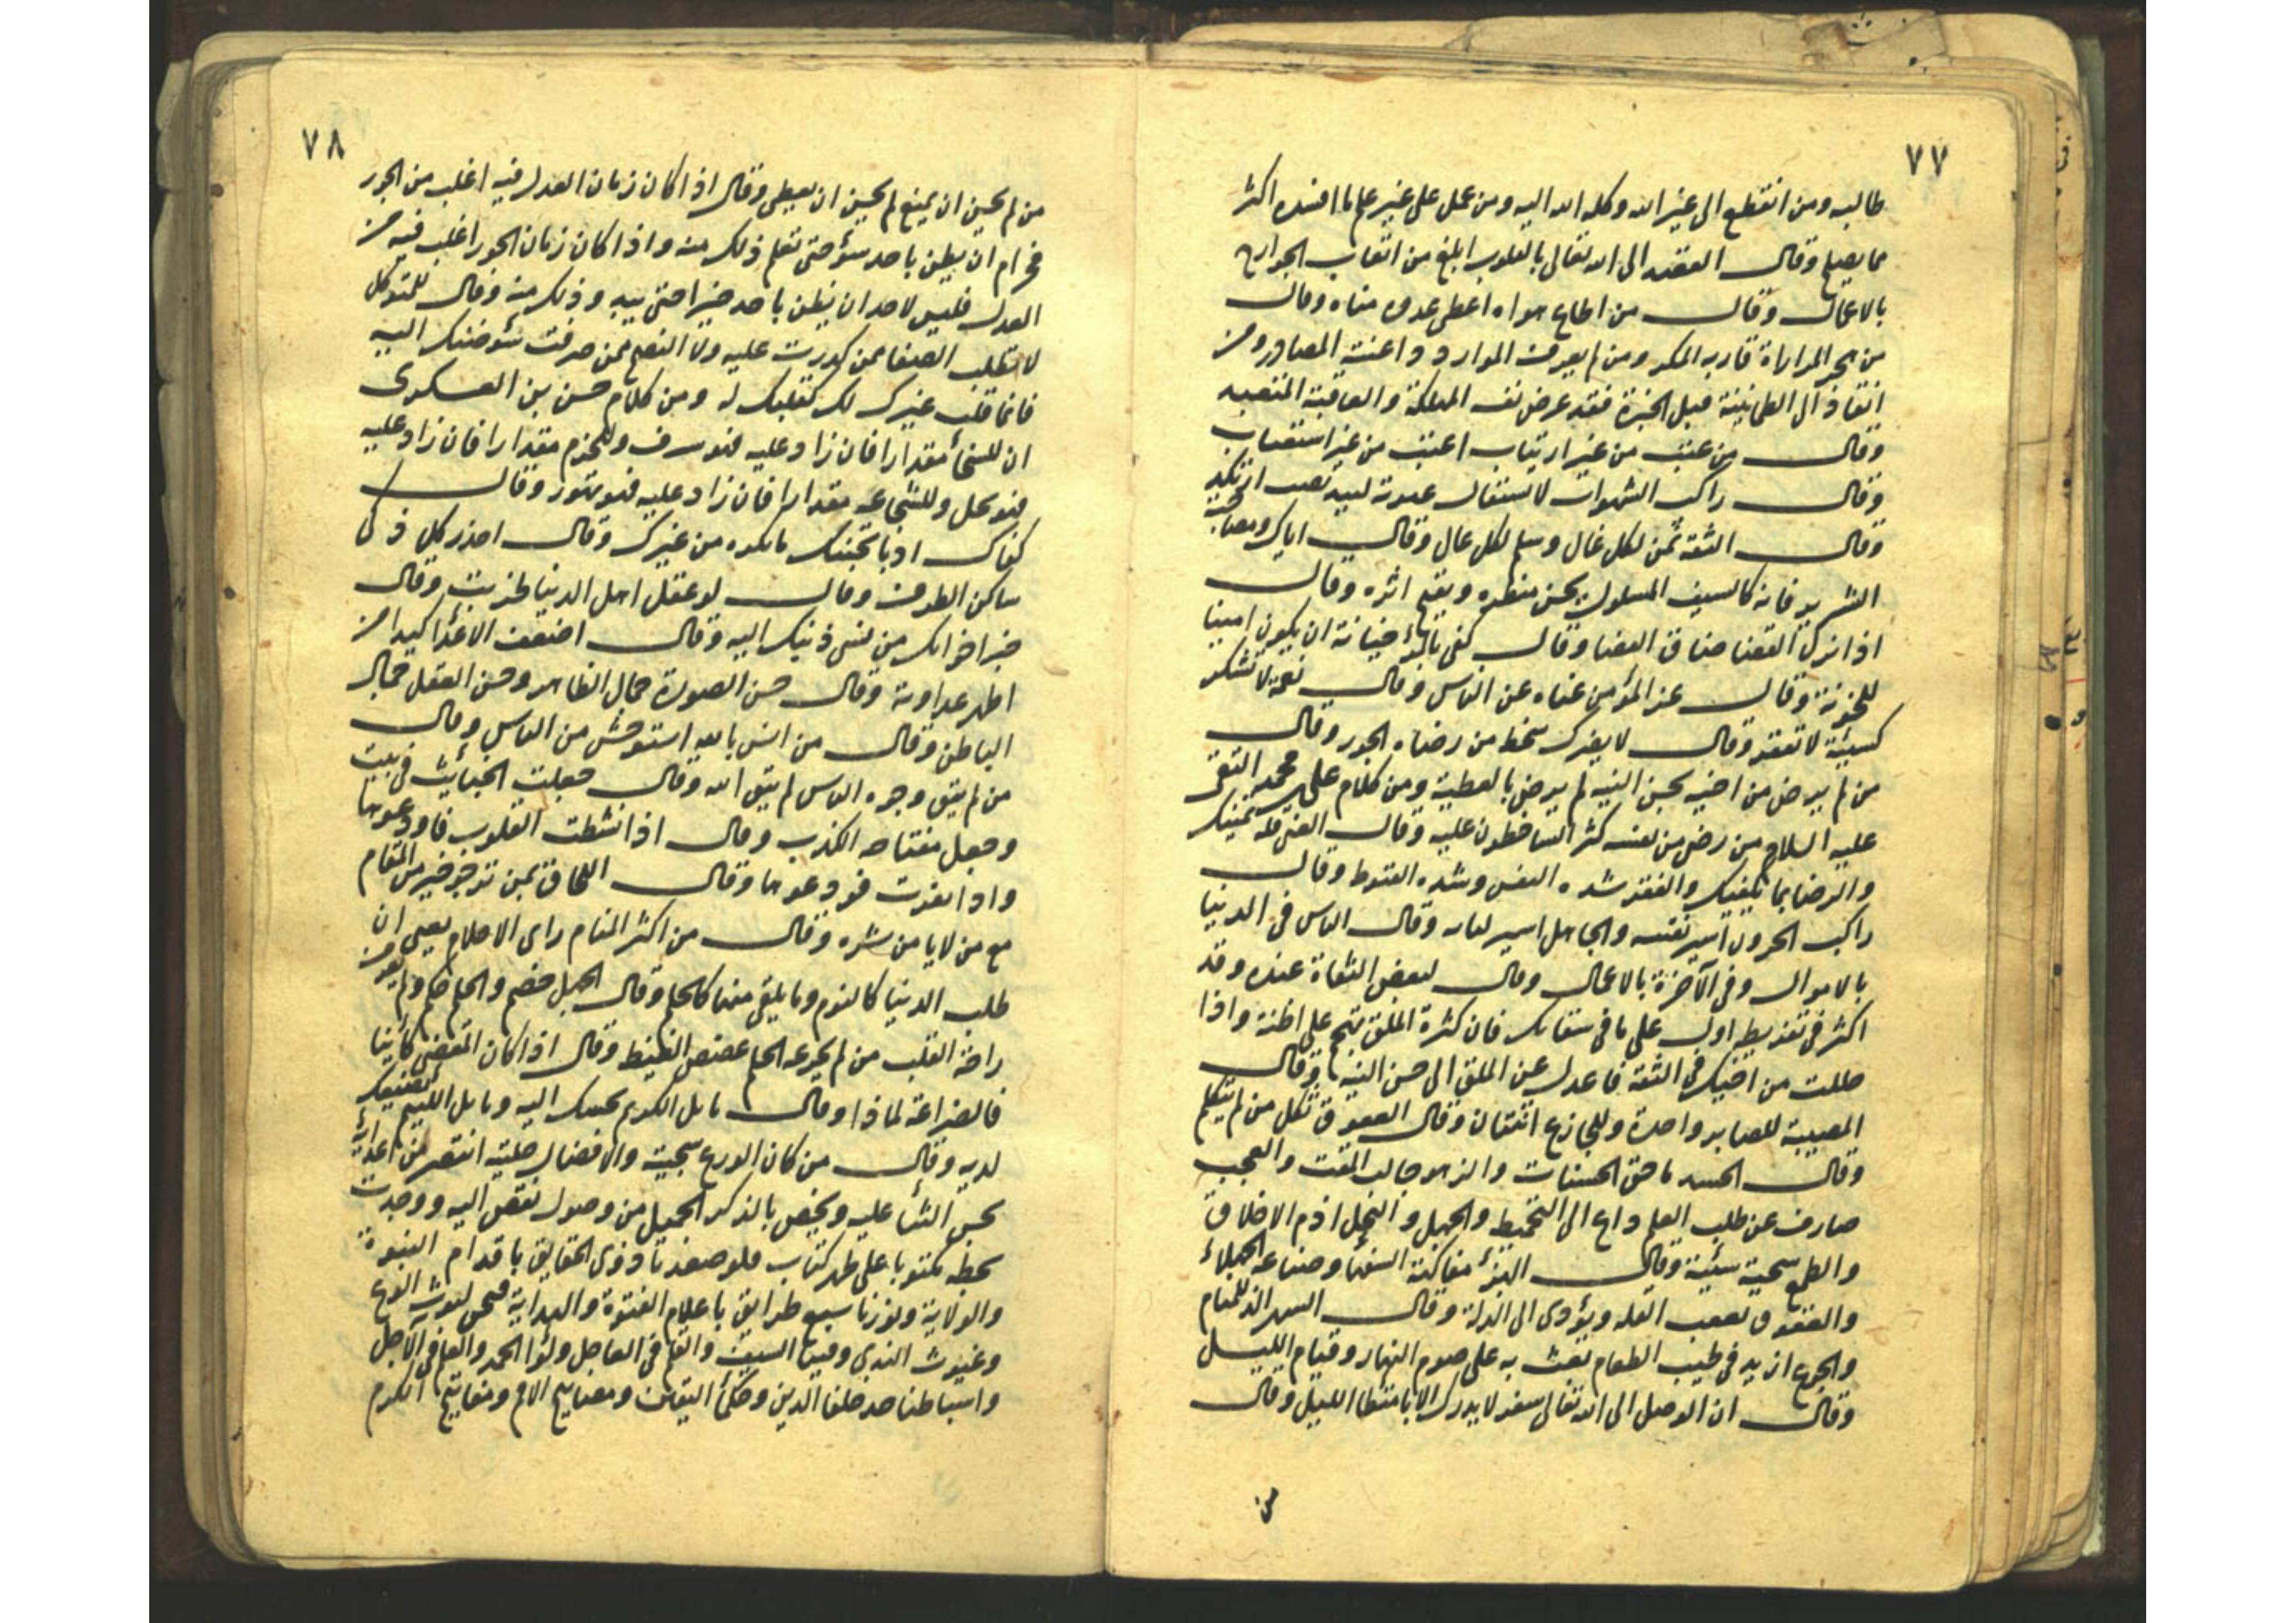 ٧٧
طالبه ومن انقطع الى غير الله وكله الله اليه ومن عمل على غير علم ما افسده اكثر
مما يصلح وقال القصد الى الله تعالى بالقلوب ابلغ من اتعاب الجوارح
بالاعمال وقال من اطاع هواه اعطى عدوه مناه وقال
من هجر المداراة قاربه المكروه ومن لم يعرف الموارد اعيته المصادر ومن
انقاد الى الطمانينة قبل الخبرة فقد عرض نفسه للهلكة والعاقبة المتعبه
وقال من عتب من غير ارتياب اعتب من غير استعتاب
وقال راكب الشهوات لا تستقال عثرته
وقال الثقة ثمن لكل غال وسلم لكل عال وقال اياك ومصاحبة
الشرير فانه كالسيف المسلول يحسن منظره ويقبح اثره وقال
اذا نزل القضا ضاق الفضا وقال كفى بالمرء خيانة ان يكون امينا
للخونة وقال عز المؤمن غناه عن الناس وقال نعمة لا تشكر
كسيئة لا تغفر وقال لا يضرك سخط من رضاه الجور وقال
من لم يرض من اخيه بحسن النيه لم يرض بالعطية ومن كلام على بن محمد النقى
عليه السلام من رضى من نفسه كثر الساخطون عليه وقال الغنى قلة تمنيك
والرضا بما يكفيك والفقر شده النفس وشده القنوط وقال
راكب الحرون اسير نفسه والجاهل اسير لسانه وقال الناس فى الدنيا
بالاموال وفى الآخرة بالاعمال وقال لبعض الثقاة عنده وقد
اكثر فى تفريطه اقبل على ما فى شقائك فان كثرة الملق يهجم على الظنة واذا
حللت من اخيك فى الثقة فاعدل عن الملق الى حسن النية وقال
المصيبة للصابر واحدة وللجازع اثنتان وقال العقوق ثكل من لم يثكل
وقال الحسد ماحق الحسنات والزهو جالب المقت والعجب
صارف عن طلب العلم داع الى التخبط والجهل والبخل اذم الاخلاق
والطمع سجية سيئة وقال الهزء مفاكهة السفها وصناعة الجهلاء
والعقوق يعقب القله ويؤدى الى الذلة وقال السهر الذ للمنام
والجوع ازيد فى طيب الطعام بعث به على صوم النهار وقيام الليل
وقال ان الوصل الى الله تعالى سفر لا يدرك الا بامتطا الليل وقال
من
٧٨
من لم يحسن ان يمنع لم يحسن ان يعطى وقال اذا كان زمان العدل فيه اغلب من الجور
فحرام ان يظن باحد سوأ حتى تعلم ذلك منه واذا كان زمان الجور اغلب فيه من
العدل فليس لاحد ان يظن باحد خيرا حتى يبدو ذلك منه وقال للمتوكل
لا تطلب الصفا ممن كدرت عليه ولا النصح ممن صرفت سوء ظنك اليه
فانما قلب غيرك لك كقلبك له ومن كلام حسن بن العسكرى
ان للسخأ مقدارا فان زاد عليه فهو سرف وللحزم مقدارا فان زاد عليه
فهو بخل وللشجاعه مقدارا فان زاد عليه فهو تهور وقال
كفاك ادبا تجنبك ما تكره من غيرك وقال احذر كل ذكى
ساكن الطرف وقال لو عقل اهل الدنيا لخربت وقال
خير اخوانك من نسى ذنبك اليه وقال اضعف الاعداء كيدا من
اظهر عداوته وقال حسن الصورة جمال الظاهر وحسن العقل جمال
الباطن وقال من انس بالله استوحش من الناس وقال
من لم يتق وجوه الناس لم يتق الله وقال جعلت الخبائث فى بيت
وجعل مفتاحه الكذب وقال اذا نشطت القلوب فاودعوها
واذا نفرت فودعوها وقال اللحاق بمن ترجو خير من المقام
مع من لا يامن شره وقال من اكثر المنام راى الاحلام يعنى ان
طلب الدنيا كالنوم وما يلقى منها كالحلم وقال الجهل خصم والحلم حكم ولم يعرف
راحة القلب من لم يجرعه الحلم غصص الغيظ وقال اذا كان المقضى كائنا
فالضراعة لماذا وقال نائل الكريم يحببك اليه ونائل اللئيم يضعك
لديه وقال من كان الورع سجيته والافضال حليته انتصر من اعدائه
بحسن الثنا عليه وتحصن بالذكر الجميل من وصول نقص اليه ووجدت
بخطه مكتوبا على ظهر كتاب قد صعدنا ذرى الحقايق باقدام النبوة
والولاية ونورنا سبع طرايق باعلام الفتوة والهداية فنحن ليوث الوغى
وغيوث الندى وفينا السيف والقلم فى العاجل ولواء الحمد والعلم فى الآجل
واسباطنا خلفا الدين وحلفأ اليقين ومصابيح الامم ومفاتيح الكرم